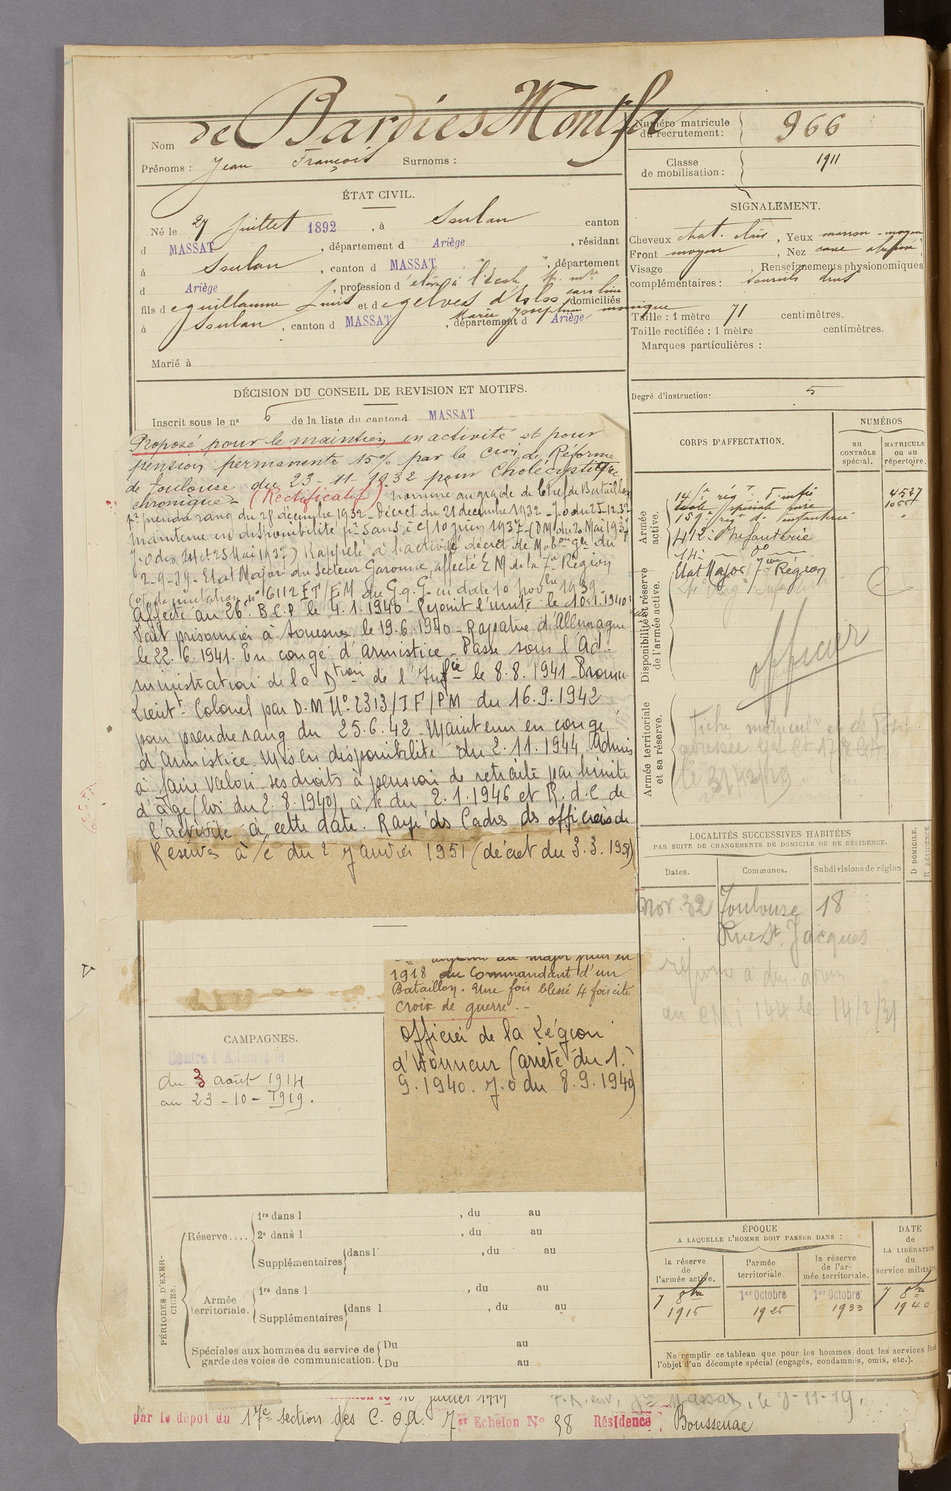 Nom de Bardies Montfa
Prénoms : Jean François Surnoms :
Numéro matricule du recrutement : 966
Classe de mobilisation : 1911
ÉTAT CIVIL.
Né le 27 juillet 1892, à Soulan canton
d MASSAT, département d Ariège, résidant
à Soulan, canton d MASSAT, département
d Ariège, profession d élève à l'école
fils de guillaume Louis et d domiciliés
à Soulan, canton d MASSAT, département d Ariège
Marié à
SIGNALEMENT.
Cheveux chat. clair, Yeux marron moyen
Front moyen, Nez cave
Visage , Renseignements physionomiques
complémentaires : sourcils drus
Taille : 1 mètre 71 centimètres.
Taille rectifiée : 1 mètre centimètres.
Marques particulières :
Degré d'instruction : 5
DÉCISION DU CONSEIL DE REVISION ET MOTIFS.
Inscrit sous le n° 6 de la liste du canton d MASSAT
Proposé pour le maintien en activité et pour
pension permanente 15% par la Cion de Réforme
de Toulouse du 23-11-1932 pour cholécystite
chronique - (Rectificatif) nommé au grade de Chef de Bataillon
pr prendre rang du 28 décembre 1932 - Décret du 21 decembre 1932 - J.O du 25.12.32
Maintenu en disponibilité pr 5 ans à c/ 10 juin 1937 - (DM du 20 Mai 1937
J.O des et 25 Mai 1937) Rappelé à l'activité décret de Mobon gle du
2-9-39 - Etat Major du Secteur Garonne, affecté E M de la Région
6112 FT/EM du G.Q.G. en date 10 novbre 1939 -
Affecté au 26e B.C.P. le 4.1.1940 - Rejoint l'unité le 10.1.1940
Fait prisonnier à le 19.6.1940 - Rapatrié d'Allemagne
le 22.6.1941. En congé d'Armistice - Passe sous l'Ad-
ministration de la Dtion de l'Infie le 8.8.1941 - Promu
Lieut. Colonel par D.M N° 2313/IF/PM du 16.9.1942
pour prendre rang du 25.6.42 - Maintenu en congé
d'Armistice. Mis en disponibilité du 2.11.1944. Admis
à faire valoir ses droits à pension de retraite par limite
d'âge (loi du 2.8.1940) à c du 2.1.1946 et R.d.C de
l'activité à cette date. Rayé des Cadres des officiers de
Réserve à/c du 2 Janvier 1951 (décret du 3.3.1951)
CORPS D'AFFECTATION.
NUMÉROS
au CONTRÔLE spécial.
MATRICULE ou au répertoire.
Armée active.
14e rég t d'infie 4527
159e régt d'infanterie
412e Infanterie
14e do
Etat Major 17me Région
Disponibilité et réserve de l'armée active.
officier
Armée territoriale et sa réserve.
le 31/12/29.
LOCALITÉS SUCCESSIVES HABITÉES
PAR SUITE DE CHANGEMENTS DE DOMICILE OU DE RÉSIDENCE.
Dates. Communes. Subdivisions de région D. DOMICILE. R. RÉSIDENCE.
Nov. 32 Toulouse 18
Rue St Jacques
1918 du Commandant d'un
Bataillon. Une fois blessé 4 fois cité
Croix de guerre. -
Officier de la Légion
d'Honneur (arrêté du 1.
9.1940. J.O du 8.9.1940)
CAMPAGNES.
Contre l'Allemagne
du 3 août 1914
au 23-10-1919.
PÉRIODES D'EXERCICES.
Réserve.... 1re dans l , du au
2e dans l , du au
Supplémentaires dans l , du au
Armée territoriale. 1re dans l , du au
Supplémentaires dans l , du au
Spéciales aux hommes du service de garde des voies de communication. Du au
Du au
ÉPOQUE
A LAQUELLE L'HOMME DOIT PASSER DANS :
la réserve de l'armée active. l'armée territoriale. la réserve de l'armée territoriale.
DATE de LA LIBÉRATION du service militaire
7 8bre 1915
1er Octobre 1925
1er Octobre 1933
7 8bre 1940
Ne remplir ce tableau que pour les hommes dont les services font
l'objet d'un décompte spécial (engagés, condamnés, omis, etc.).
par le dépôt du 17e section des C.O.A. 7er Echelon N° 38 Résidence : Boussenac